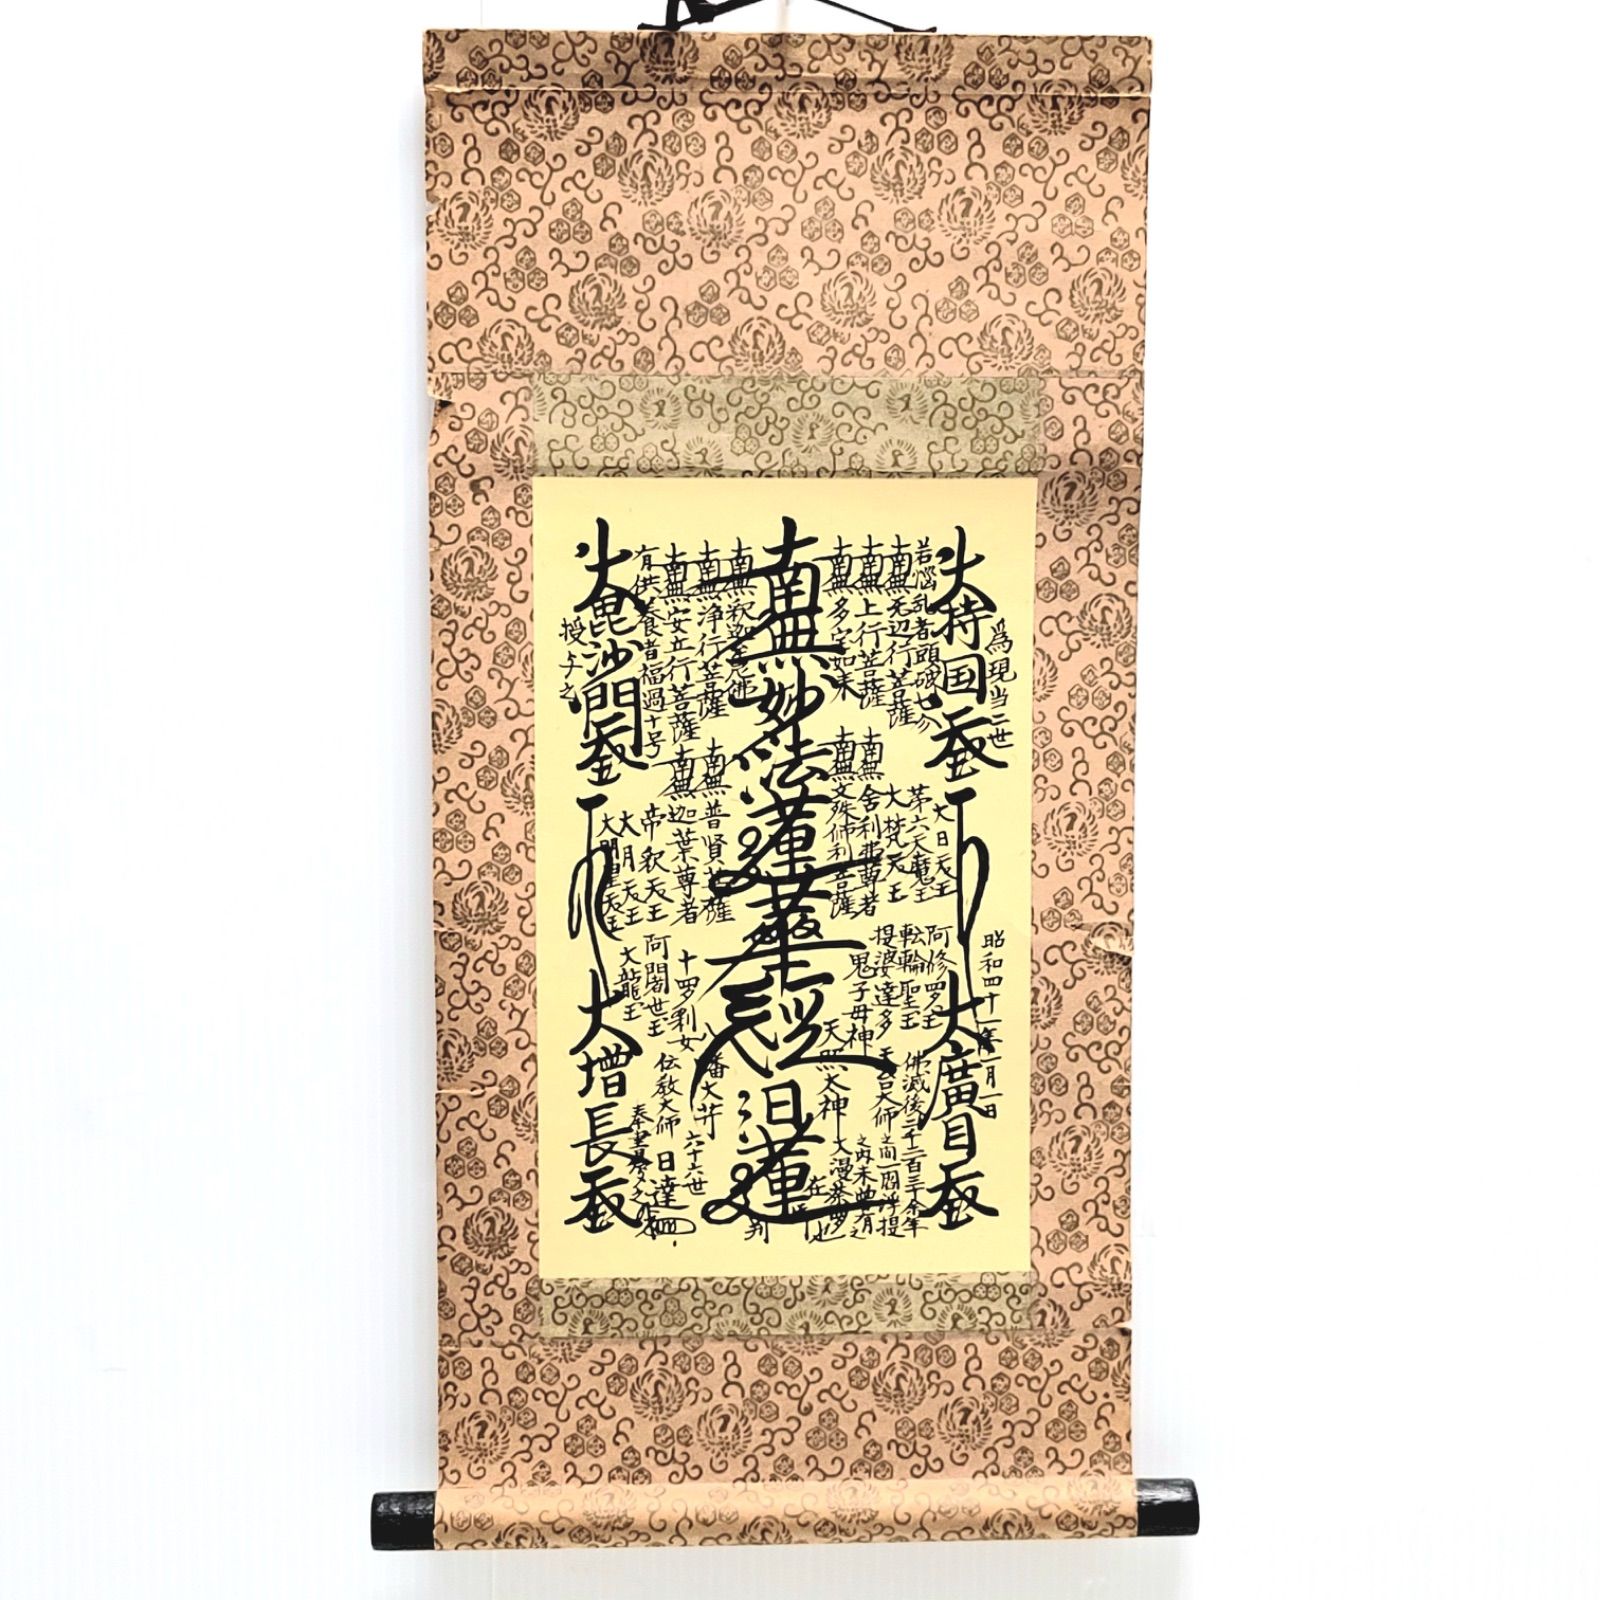 為現当二世
昭和四十一年一月一日
大持国天王
大廣目天王
若悩乱者頭破七分
南無无辺行菩薩
南無上行菩薩
南無多宝如来
南無妙法蓮華経
日蓮
在御判
南無釈迦牟尼佛
南無浄行菩薩
南無安立行菩薩
有供養者福過十号
大毘沙門天王
大増長天王
授与之
大日天王
第六天魔王
大梵天王
南無舎利弗尊者
南無文殊師利菩薩
南無普賢菩薩
南無迦葉尊者
帝釈天王
大月天王
大明星天王
阿修羅王
転輪聖王
提婆達多
鬼子母神
天照太神
十羅刹女
阿闍世王
大龍王
八幡大菩薩
天台大師
伝教大師
佛滅後二千二百三十余年
之間一閻浮提
之内未曽有之
大漫荼羅也
六十六世
日達
奉書写之